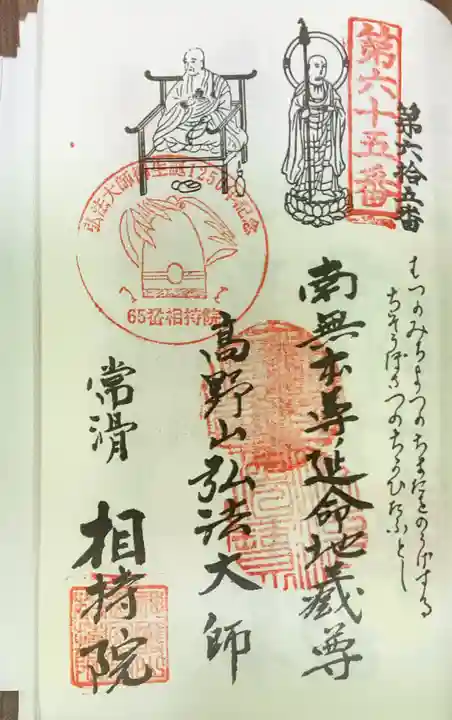 第六十五番
第六拾五番
むつのみちよつのちまたをのがれする
ちそうぼさつのちかひたふとし
南無本尊延命地蔵尊
高野山弘法大師
弘法大師御生誕1250年記念
65番相持院
常滑
相持院